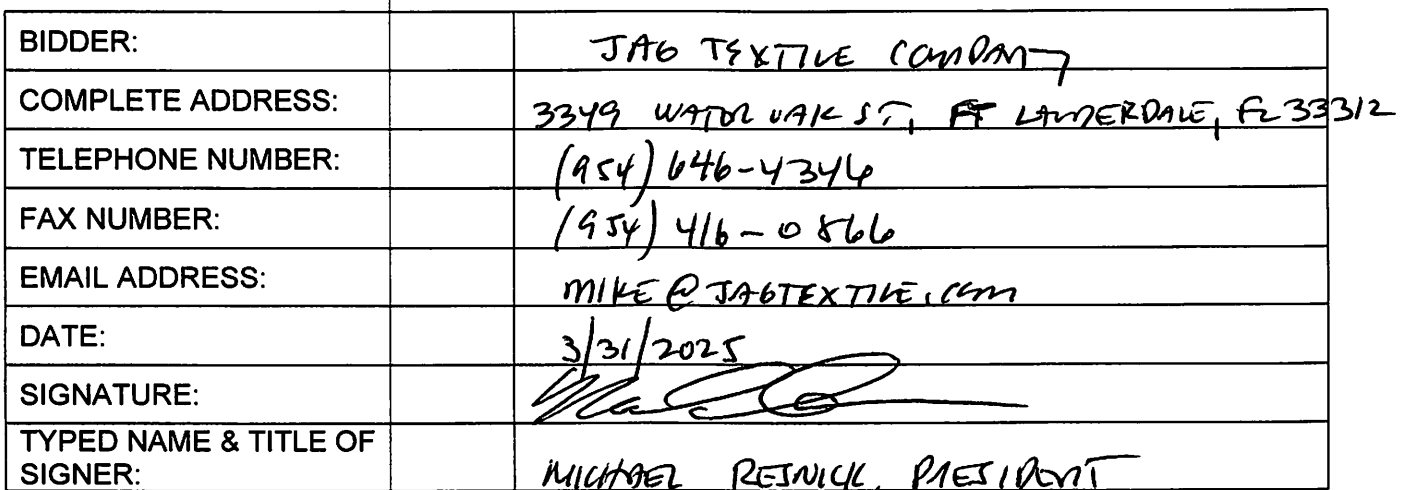 BIDDER: JAG TEXTILE COMPANY
COMPLETE ADDRESS: 3349 WATER OAK ST, FT LAUDERDALE, FL 33312
TELEPHONE NUMBER: (954) 646-4346
FAX NUMBER: (954) 416-0866
EMAIL ADDRESS: MIKE@JAGTEXTILE.COM
DATE: 3/31/2025
SIGNATURE:
TYPED NAME & TITLE OF
SIGNER: MICHAEL RESNICK, PRESIDENT